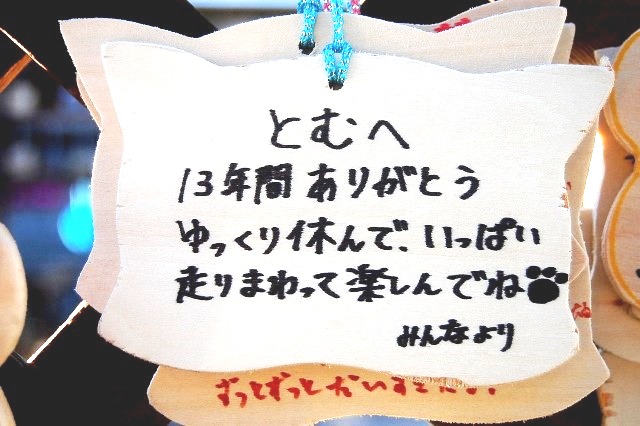 とむへ
13年間ありがとう
ゆっくり休んで、いっぱい
走りまわって楽しんでね🐾
みんなより
ずっとずっとだいすきだよ!